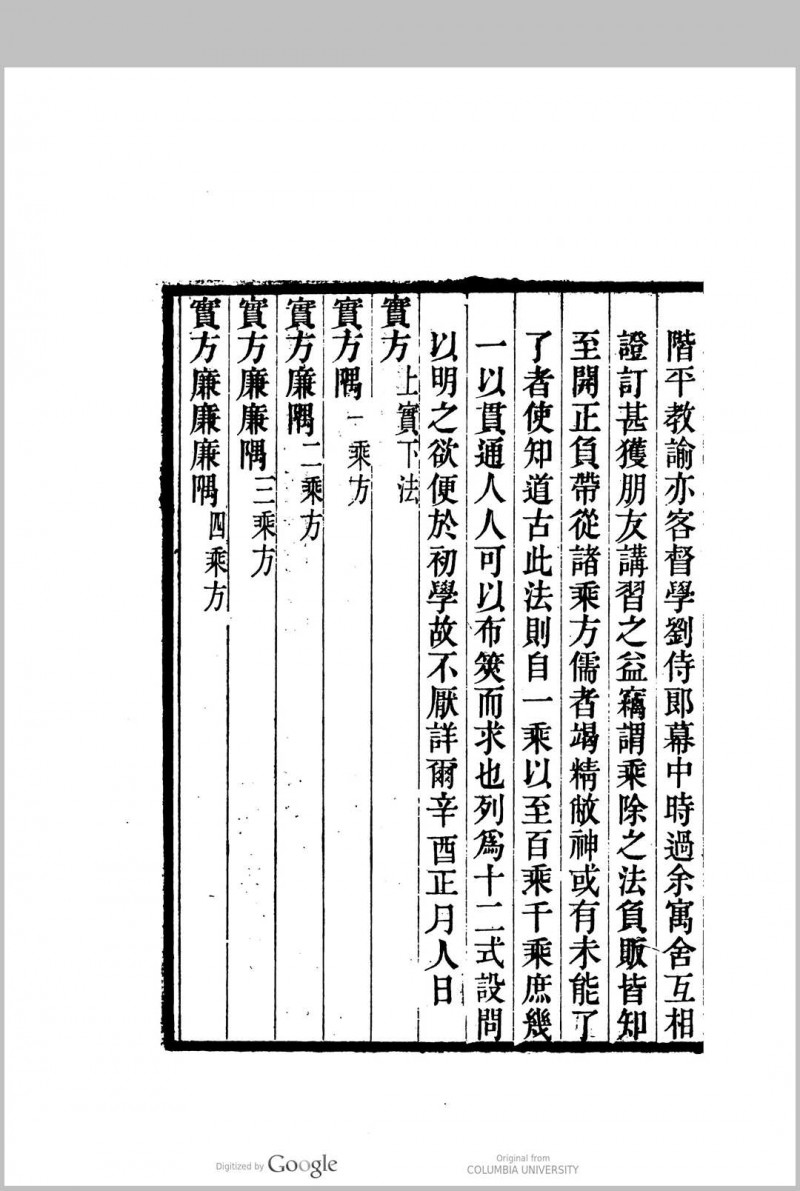 階平教諭亦客督學劉侍郎幕中時過余寓舍互相
證訂甚獲朋友講習之益竊謂乘除之法負販皆知
至開正負帶從諸乘方儒者竭精敝神或有未能了
了者使知道古此法則自一乘以至百乘千乘庶幾
一以貫通人人可以布筴而求也列爲十二式設問
以明之欲便於初學故不厭詳爾辛酉正月人日
實方 上實下法
實方隅 一乘方
實方廉隅 二乘方
實方廉廉隅 三乘方
實方廉廉廉隅 四乘方
Digitized by Google
Original from
COLUMBIA UNIVERSITY